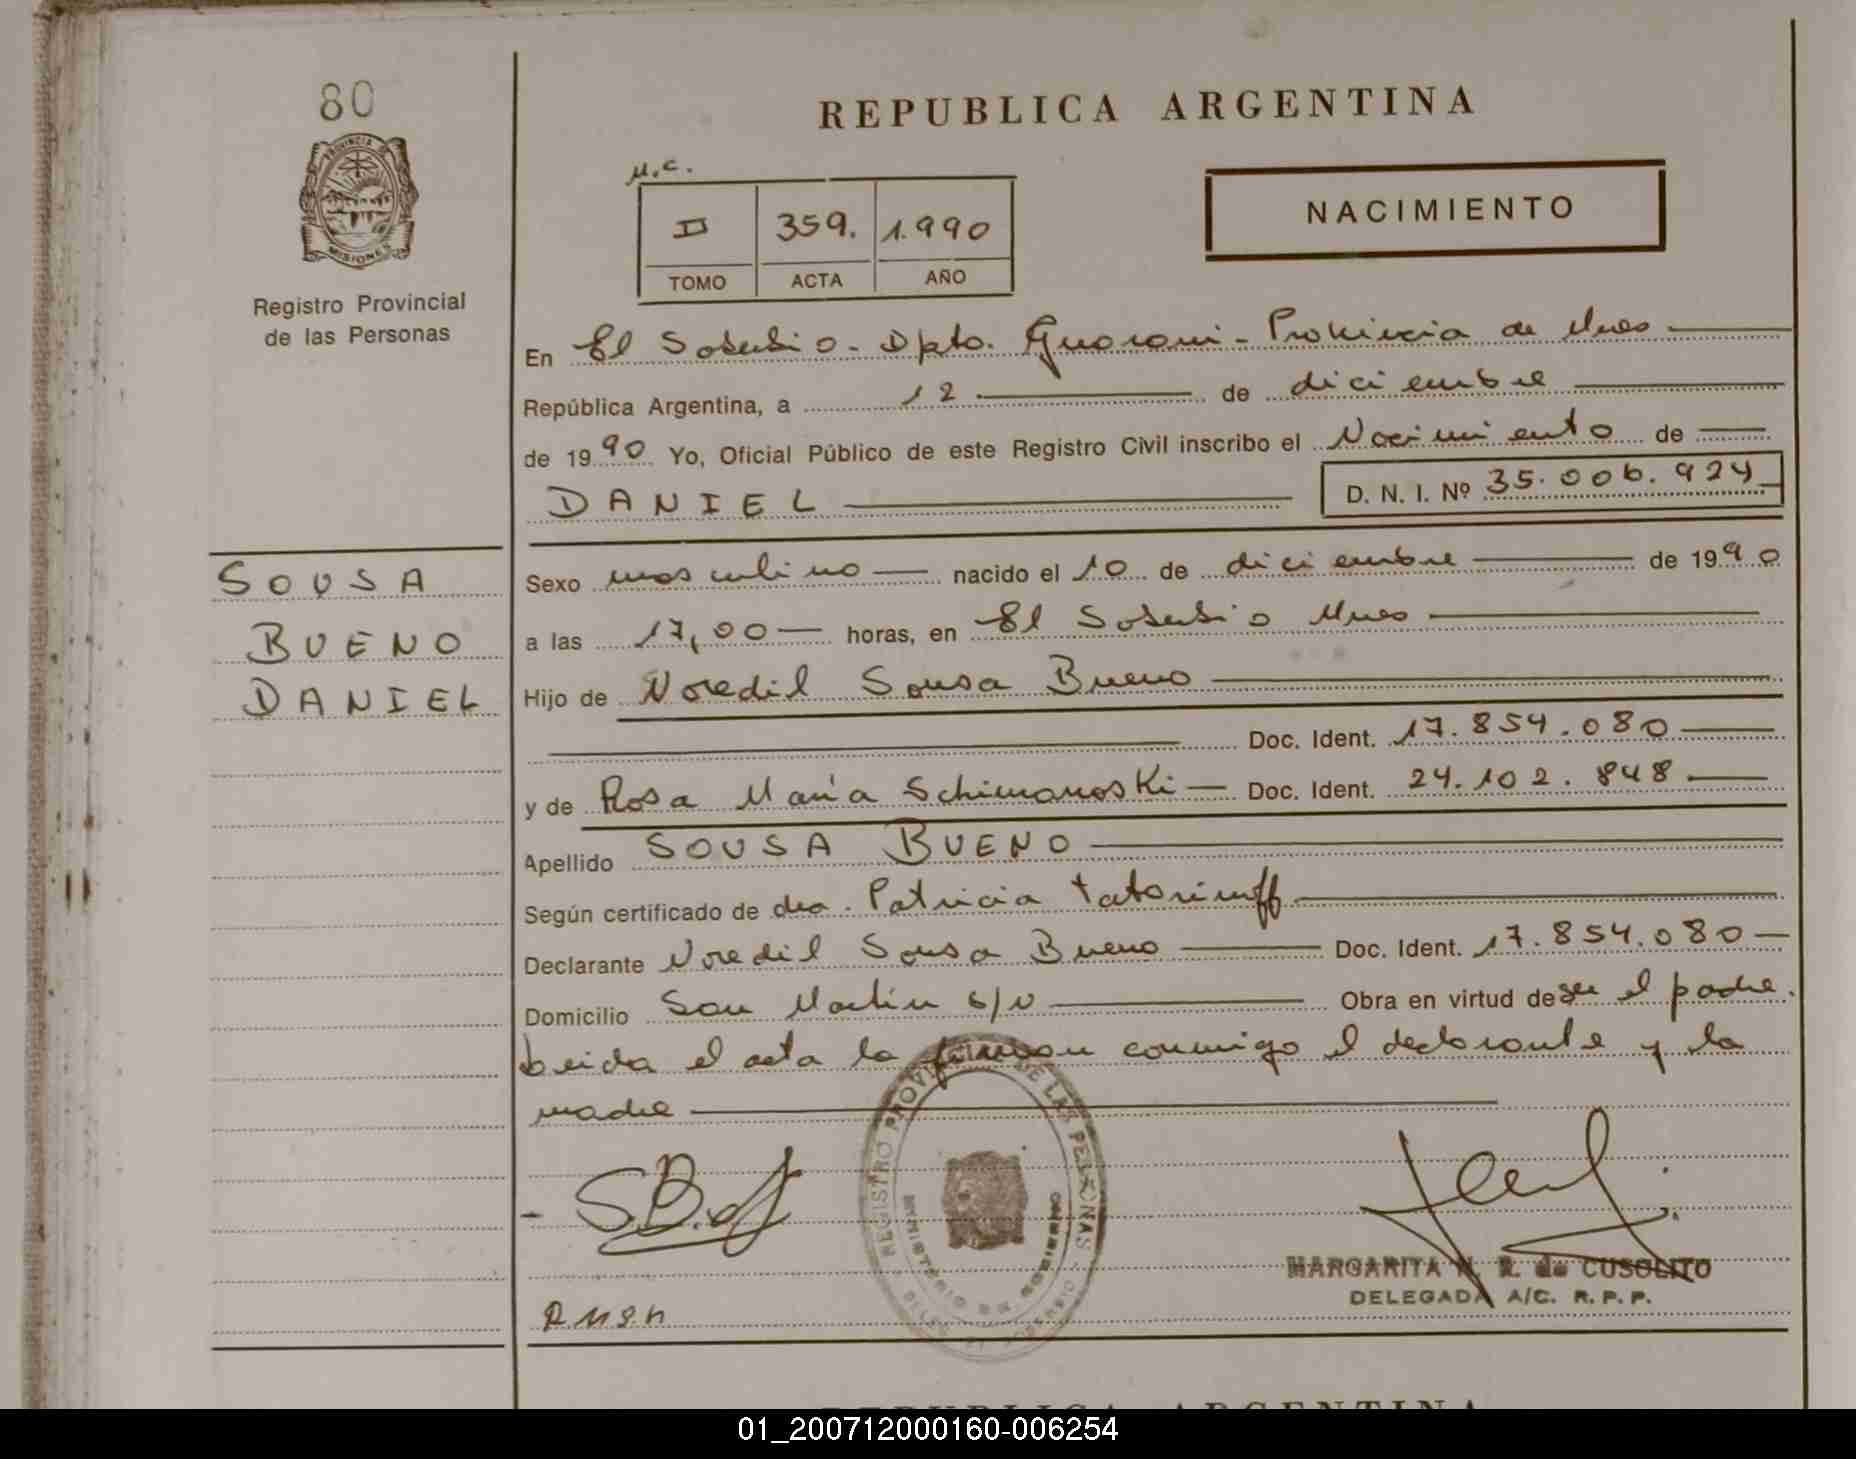 80
PROVINCIA DE
MISIONES
Registro Provincial
de las Personas
SOUSA
BUENO
DANIEL
REPUBLICA ARGENTINA
M.C.
II 359. 1.990
TOMO ACTA AÑO
NACIMIENTO
En El Soberbio - Dpto. Guarani - Provincia de Mnes
República Argentina, a 12 de diciembre
de 1990 Yo, Oficial Público de este Registro Civil inscribo el Nacimiento de
DANIEL D. N. I. Nº 35.006.924
Sexo masculino nacido el 10 de diciembre de 1990
a las 17,00 horas, en El Soberbio Mnes
Hijo de Noredil Sousa Bueno
Doc. Ident. 17.854.080
y de Rosa María Schimanoski Doc. Ident. 24.102.848
Apellido SOUSA BUENO
Según certificado de dra. Patricia
Declarante Noredil Sousa Bueno Doc. Ident. 17.854.080
Domicilio San Martín s/n Obra en virtud de ser el padre.
Leida el acta la firman conmigo el declarante y la
madre
REGISTRO PROVINCIAL DE LAS PERSONAS
MINISTERIO DE GOBIERNO
MARGARITA N. R. de CUSOLITO
DELEGADA A/C. R.P.P.
R.M.S.H
REPUBLICA ARGENTINA
01_200712000160-006254